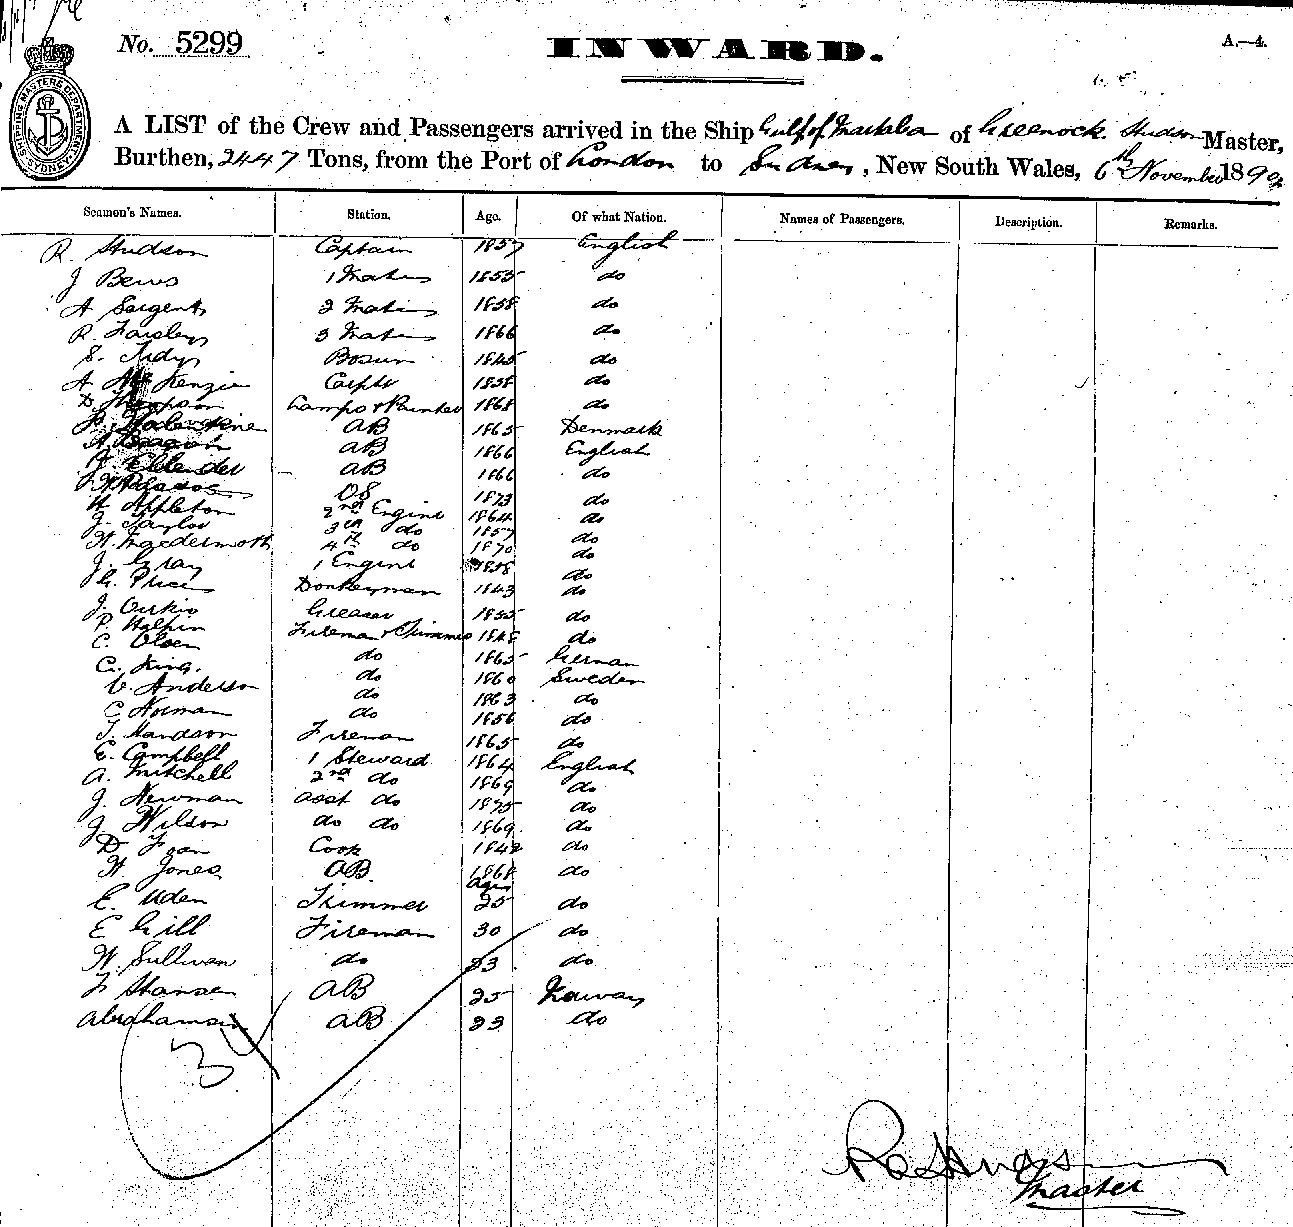 No. 5299
INWARD.
A.—4.
SHIPPING MASTERS DEPARTMENT SYDNEY
A LIST of the Crew and Passengers arrived in the Ship Gulf of of Greenock. Hudson Master,
Burthen, 2447 Tons, from the Port of London to Sydney, New South Wales, 6th November 189
Seamen's Names. Station. Age. Of what Nation. Names of Passengers. Description. Remarks.
R. Hudson Captain 1857 English
J Bews 1 Mate 1855 do
A Sargent 2 Mate 1858 do
R. 3 Mate 1866 do
S. Bosun 1845 do
A McKenzie Carptr 1858 do
D. Thompson Lamps & Painter 1868 do
AB 1865 Denmark
A AB 1866 English
J AB 1866 do
OS 1873 do
H Appleton 2nd Engine 1864 do
J. Taylor 3rd do 1857 do
4th do 1870 do
J. Gray 1 Engine 1858 do
G. Price Donkeyman 1843 do
J. Greaser 1855 do
P. Halpin Fireman & Trimmer 1848 do
C. Olsen do 1865 German
C. King. do 1860 Sweden
V. Anderson do 1863 do
C Norman do 1856 do
Fireman 1865 do
E. Campbell 1 Steward 1864 English
A. Mitchell 2nd do 1869 do
J. Newman asst do 1875 do
J. Wilson do do 1869. do
D Cook 1842 do
H. Jones AB. 1868 do
Ages
E. Uden Trimmer 25 do
E Gill Fireman 30 do
H. Sullivan do 23 do
F Hansen AB 25 Norway
Abrahamsen AB 23 do
34
R Hudson
Master